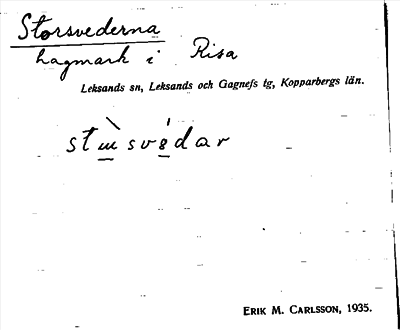 Storsvederna
hagmark i Risa
Leksands sn, Leksands och Gagnefs tg, Kopparbergs län.
ERIK M. CARLSSON, 1935.